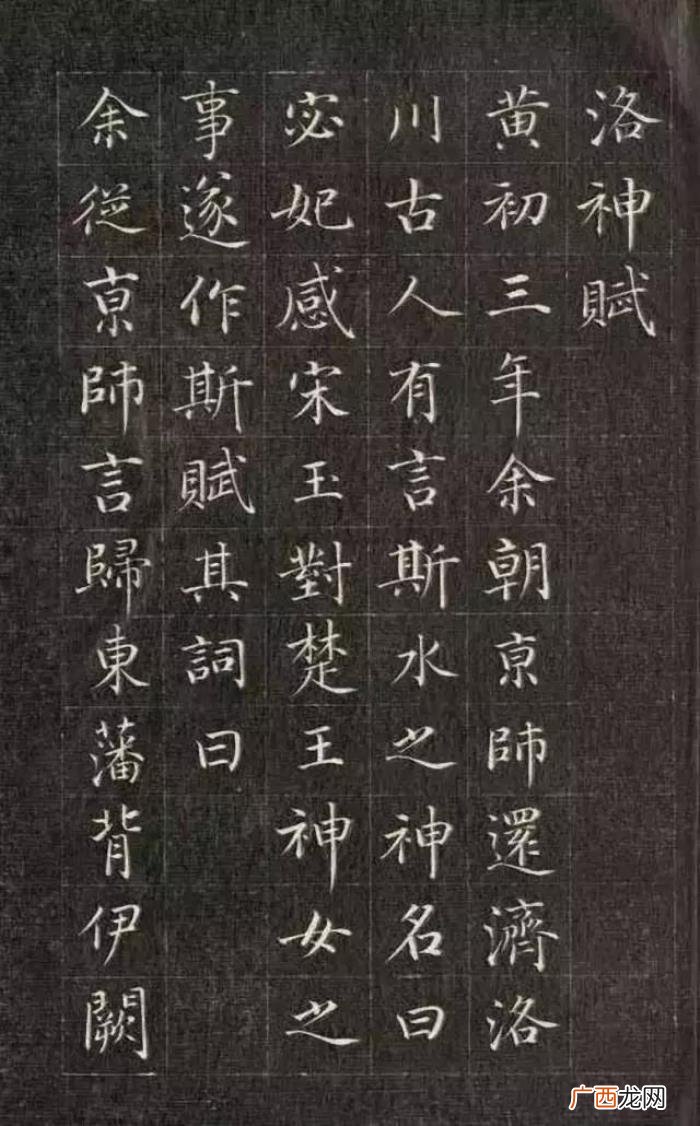 洛神賦
黄初三年余朝京師還濟洛
川古人有言斯水之神名曰
宓妃感宋玉對楚王神女之
事遂作斯賦其詞曰
余從京師言歸東藩背伊闕
广西龙网